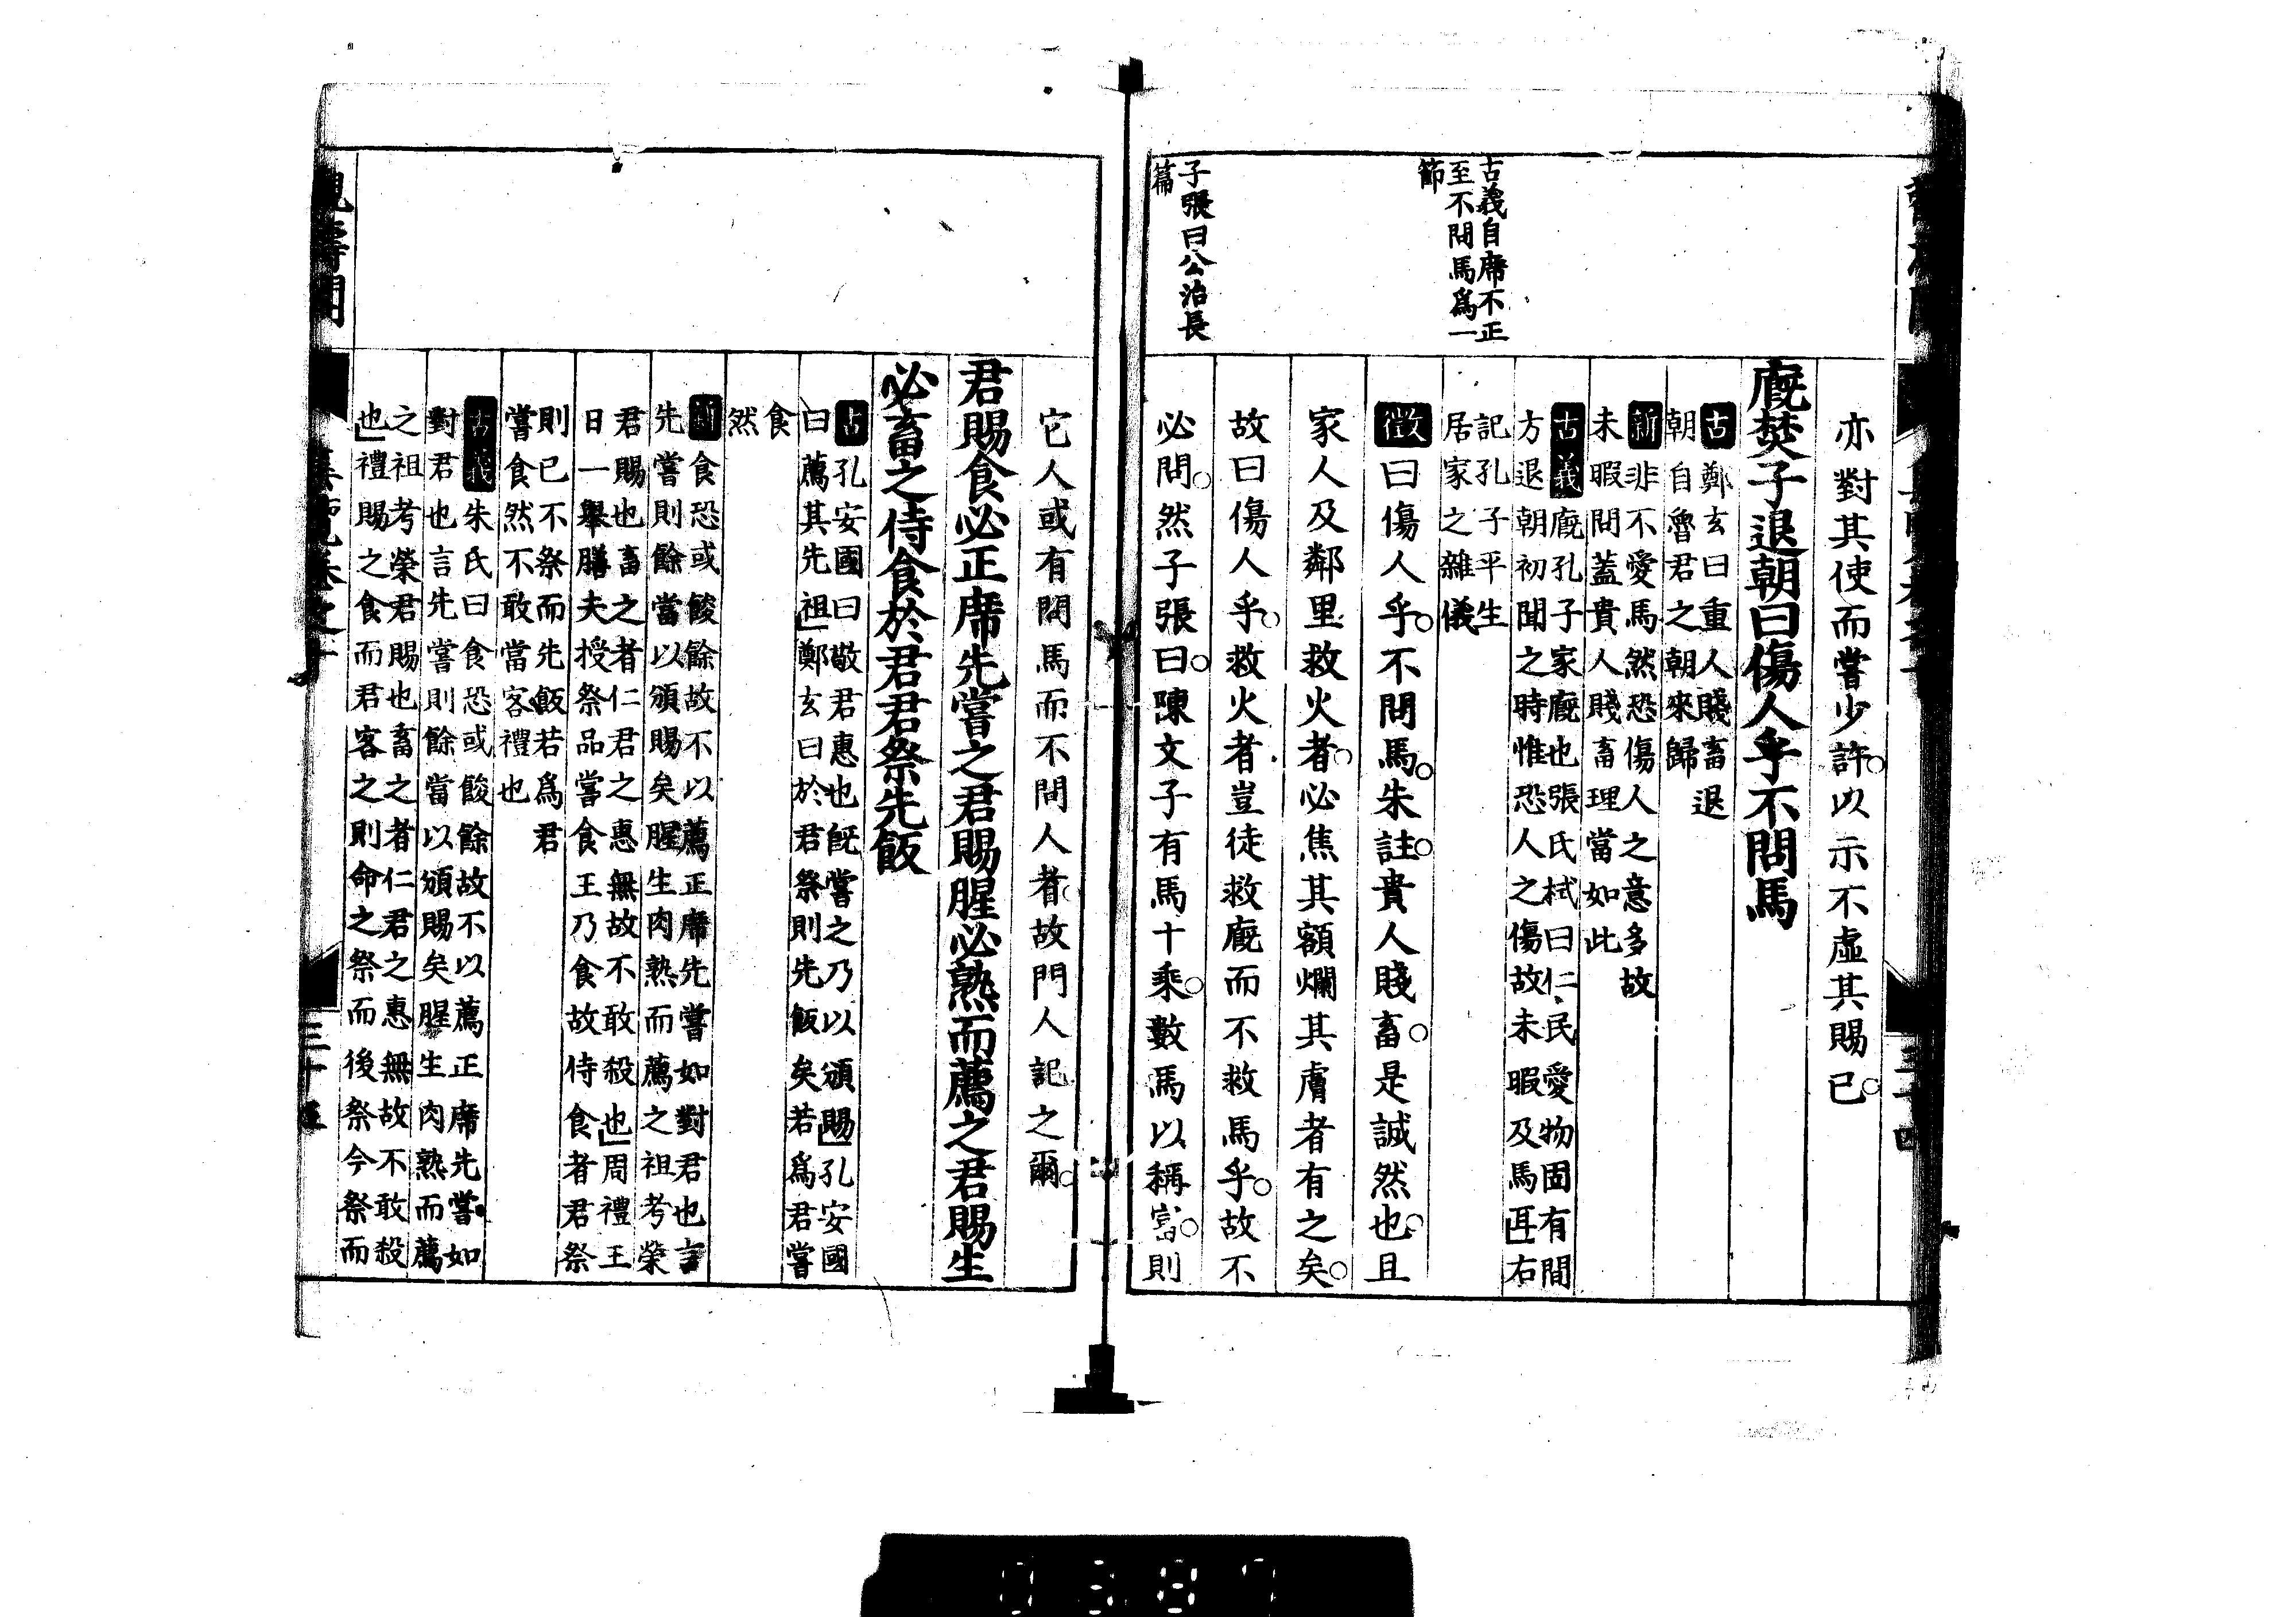 古義自席不正
至不問馬爲一
節
子張曰公治長
篇
亦對其使而嘗少許以示不虛其賜已
廐焚子退朝曰傷人乎不問馬
古鄭玄曰重人賤畜退
朝自魯君之朝來歸
新非不愛馬然恐傷人之意多故
未暇問蓋貴人賤畜理當如此
古義廐孔子家廐也張氏栻曰仁民愛物固有間
方退朝初聞之時惟恐人之傷故未暇及馬耳右
記孔子平生
居家之雜儀
徵曰傷人乎不問馬朱註貴人賤畜是誠然也且
家人及鄰里救火者必焦其額爛其膚者有之矣
故曰傷人乎救火者豈徒救廐而不救馬乎故不
必問然子張曰陳文子有馬十乘數馬以稱富則
它人或有問馬而不問人者故門人記之爾
君賜食必正席先嘗之君賜腥必熟而薦之君賜生
必畜之侍食於君君祭先飯
古孔安國曰敬君惠也旣嘗之乃以頒賜孔安國
曰薦其先祖鄭玄曰於君祭則先飯矣若爲君嘗
食
然
新食恐或餕餘故不以薦正席先嘗如對君也言
先嘗則餘當以頒賜矣腥生肉熟而薦之祖考榮
君賜也畜之者仁君之惠無故不敢殺也周禮王
日一舉膳夫授祭品嘗食王乃食故侍食者君祭
則已不祭而先飯若爲君
嘗食然不敢當客禮也
古義朱氏曰食恐或餕餘故不以薦正席先嘗如
對君也言先嘗則餘當以頒賜矣腥生肉熟而薦
之祖考榮君賜也畜之者仁君之惠無故不敢殺
也禮賜之食而君客之則命之祭而後祭今祭而
三十五